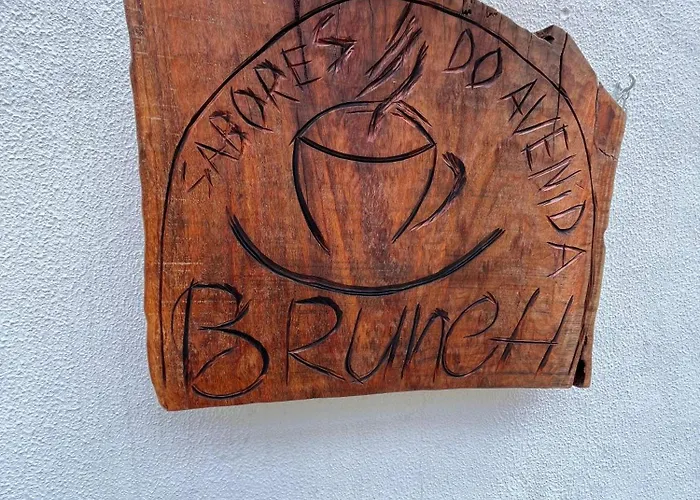 SABORES DO AVENDA
BRUncH